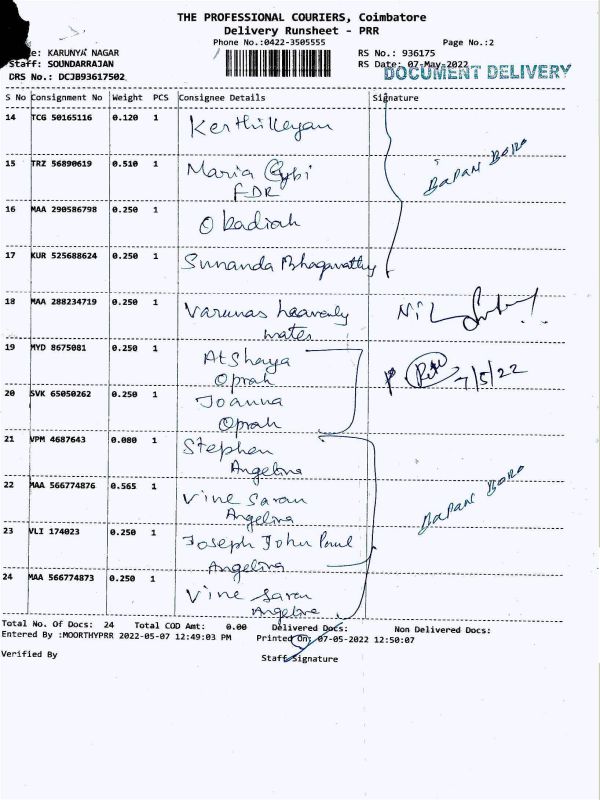 THE PROFESSIONAL COURIERS, Coimbatore
Delivery Runsheet - PRR
Phone No.:0422-3505555
Page No.:2
e: KARUNYA NAGAR
RS No.: 936175
Staff: SOUNDARRAJAN
RS Date: 07-May-2022
DOCUMENT DELIVERY
DRS No.: DCJB93617502
S No Consignment No Weight PCS Consignee Details Signature
14 TCG 50165116 0.120 1 Kerthikeyan
15 TRZ 56890619 0.510 1 Maria
FDR
BAPAN BORO
16 MAA 290586798 0.250 1 Obadiah
17 KUR 525688624 0.250 1 Sunanda Bhagavathy
18 MAA 288234719 0.250 1 Varunas heavenly
water
19 MYD 8675081 0.250 1 Atshaya
Oprah
7/5/22
20 SVK 65050262 0.250 1 Joanna
Oprah
21 VPM 4687643 0.080 1 Stephen
Angelina
22 MAA 566774876 0.565 1 Vine Saran
Angelina
BAPAN BORO
23 VLI 174023 0.250 1 Joseph John Paul
Angelina
24 MAA 566774873 0.250 1 Vine Saran
Angeline
Total No. Of Docs: 24 Total COD Amt: 0.00 Delivered Docs: Non Delivered Docs:
Entered By :MOORTHYPRR 2022-05-07 12:49:03 PM Printed On: 07-05-2022 12:50:07
Verified By Staff Signature